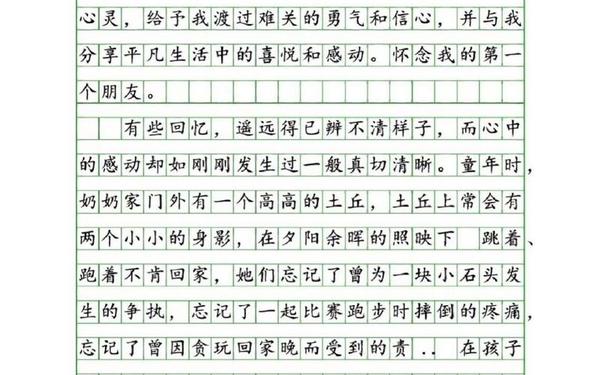 心灵，给予我渡过难关的勇气和信心，并与我
分享平凡生活中的喜悦和感动。怀念我的第一
个朋友。
有些回忆，遥远得已辨不清样子，而心中
的感动却如刚刚发生过一般真切清晰。童年时，
奶奶家门外有一个高高的土丘，土丘上常会有
两个小小的身影，在夕阳余晖的照映下 跳着、
跑着不肯回家，她们忘记了曾为一块小石头发
生的争执，忘记了一起比赛跑步时摔倒的疼痛，
忘记了曾因贪玩回家晚而受到的责.. 在孩子